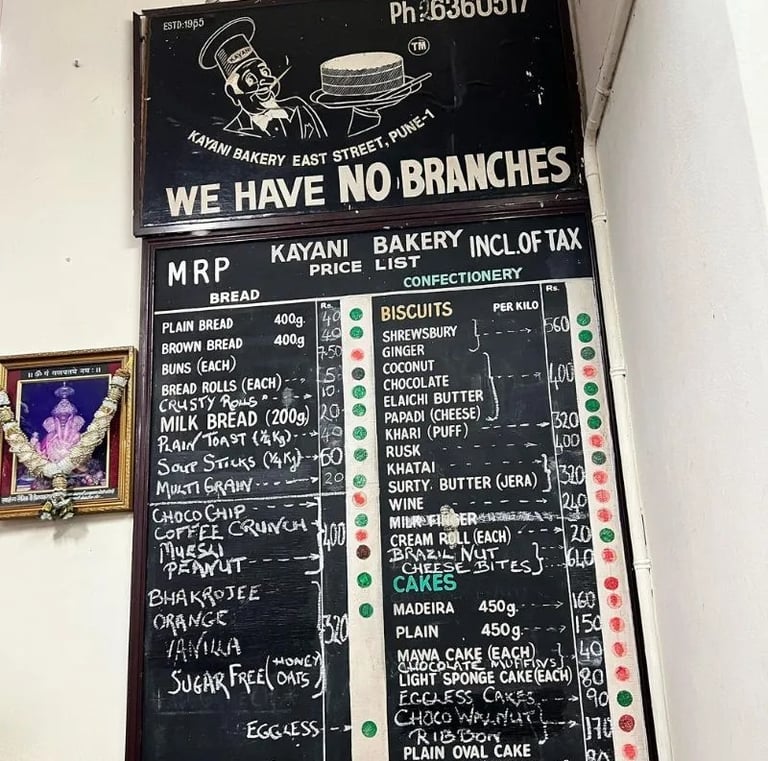 ESTD:1955
Ph:26360517
KAYANI
TM
KAYANI BAKERY EAST STREET, PUNE-1
WE HAVE NO BRANCHES
KAYANI BAKERY
MRP
PRICE LIST
INCL.OF TAX
BREAD
Rs.
PLAIN BREAD 400g. 40
BROWN BREAD 400g 40
BUNS (EACH) 7.50
BREAD ROLLS (EACH) 5
CRUSTY ROLLS 10
MILK BREAD (200g) 20
PLAIN TOAST (¼Kg) 40
SOUP STICKS (¼Kg) 60
MULTI GRAIN 20
CHOCO CHIP
COFFEE CRUNCH
MUESLI
PEANUT
400
BHAKROJEE
ORANGE
VANILLA
SUGAR FREE (HONEY OATS)
320
EGGLESS
CONFECTIONERY
BISCUITS PER KILO Rs.
SHREWSBURY
GINGER
560
COCONUT
CHOCOLATE
ELAICHI BUTTER
PAPADI (CHEESE)
400
KHARI (PUFF) 320
RUSK 400
KHATAI
SURTY. BUTTER (JERA)
320
WINE 240
MILK FINGER
CREAM ROLL (EACH) 20
BRAZIL NUT
CHEESE BITES
640
CAKES
MADEIRA 450g 160
PLAIN 450g. 150
MAWA CAKE (EACH)
CHOCOLATE MUFFINS
40
LIGHT SPONGE CAKE (EACH) 80
EGGLESS CAKES 90
CHOCO WALNUT
RIBBON
170
PLAIN OVAL CAKE
॥ ॐ गं गणपतये नमः ॥